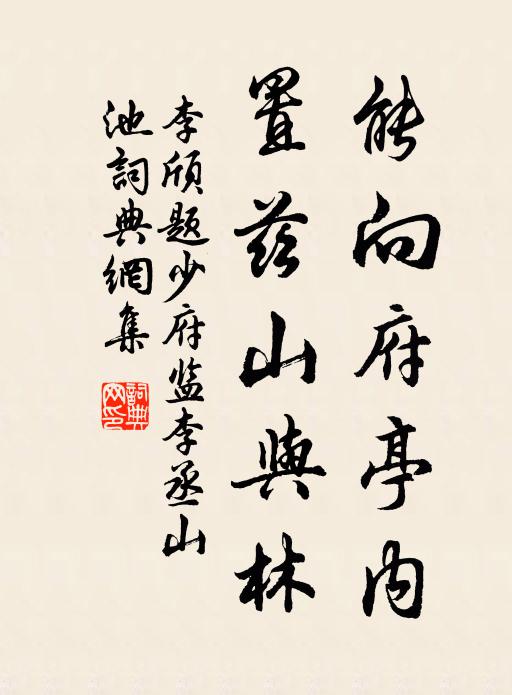 能向府亭内
置兹山與林
李颀题少府监李丞山
池詞典網集
詞典網印